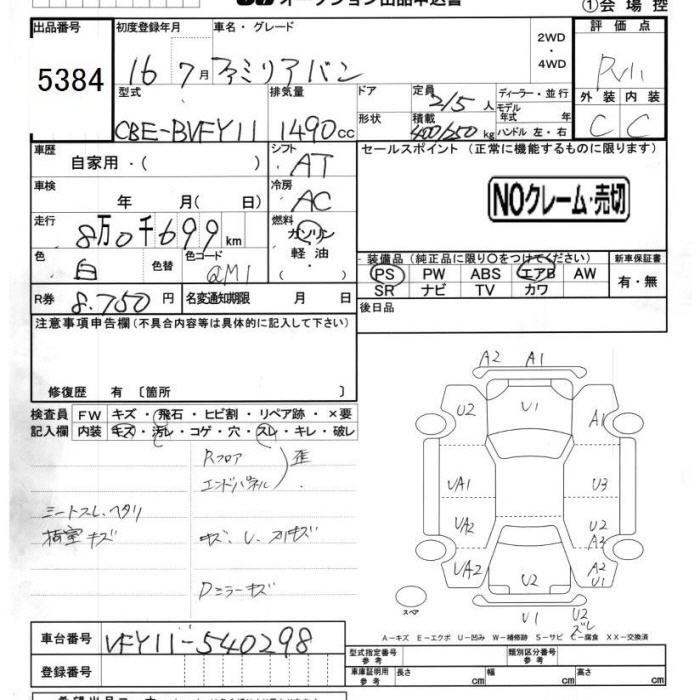 オークション出品申込書
①会場控
出品番号 初度登録年月 車名・グレード 2WD ・ 4WD 評価点
5384 16 7月 ファミリアバン
型式 排気量 ドア 定員 2/5人 ディーラー・並行 外装 内装
CBE-BVFY11 1490cc 形状 積載 400/250kg モデル年式 年 ハンドル 左・右 C C
車歴 自家用・( ) シフト AT セールスポイント(正常に機能するものに限ります)
車検 年 月( 日) 冷房 AC NOクレーム・売切
走行 8万0千699km 燃料 ガソリン 軽油 ・( )
装備品(純正品に限り○をつけてください) 新車保証書
色 白 色替 色コード QM1
PS PW ABS エアB AW 有・無
SR ナビ TV カワ
R券 8.750円 名変通知期限 月 日 後日品
注意事項申告欄(不具合内容等は具体的に記入して下さい)
修復歴 有 〔箇所 〕
検査員 FW キズ・飛石・ヒビ割・リペア跡・×要
記入欄 内装 キズ・汚レ・コゲ・穴・スレ・キレ・破レ
Rフロア
エンドパネル 歪
シートスレ、ヘタリ
荷室キズ キズ、U、スリキズ
Dミラーキズ
A2 A1
U2 U1 A1
UA1 U3
UA2 U2 A2
UA2 U2 A2 U1
スペア U1 U2 ズレ
A-キズ E-エクボ U-凹み W-補修跡 S-サビ C-腐食 XX-交換済
車台番号 VFY11-540298
型式指定番号 参考 類別区分番号 参考
登録番号 車庫証明用 参考 長さ cm 幅 cm 高さ cm